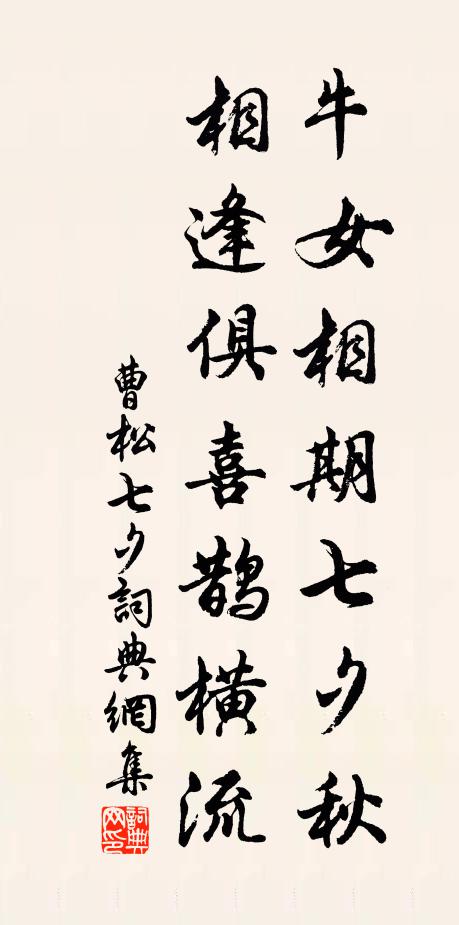 牛女相期七夕秋
相逢俱喜鹊橫流
曹松七夕詞典網集
詞典网印